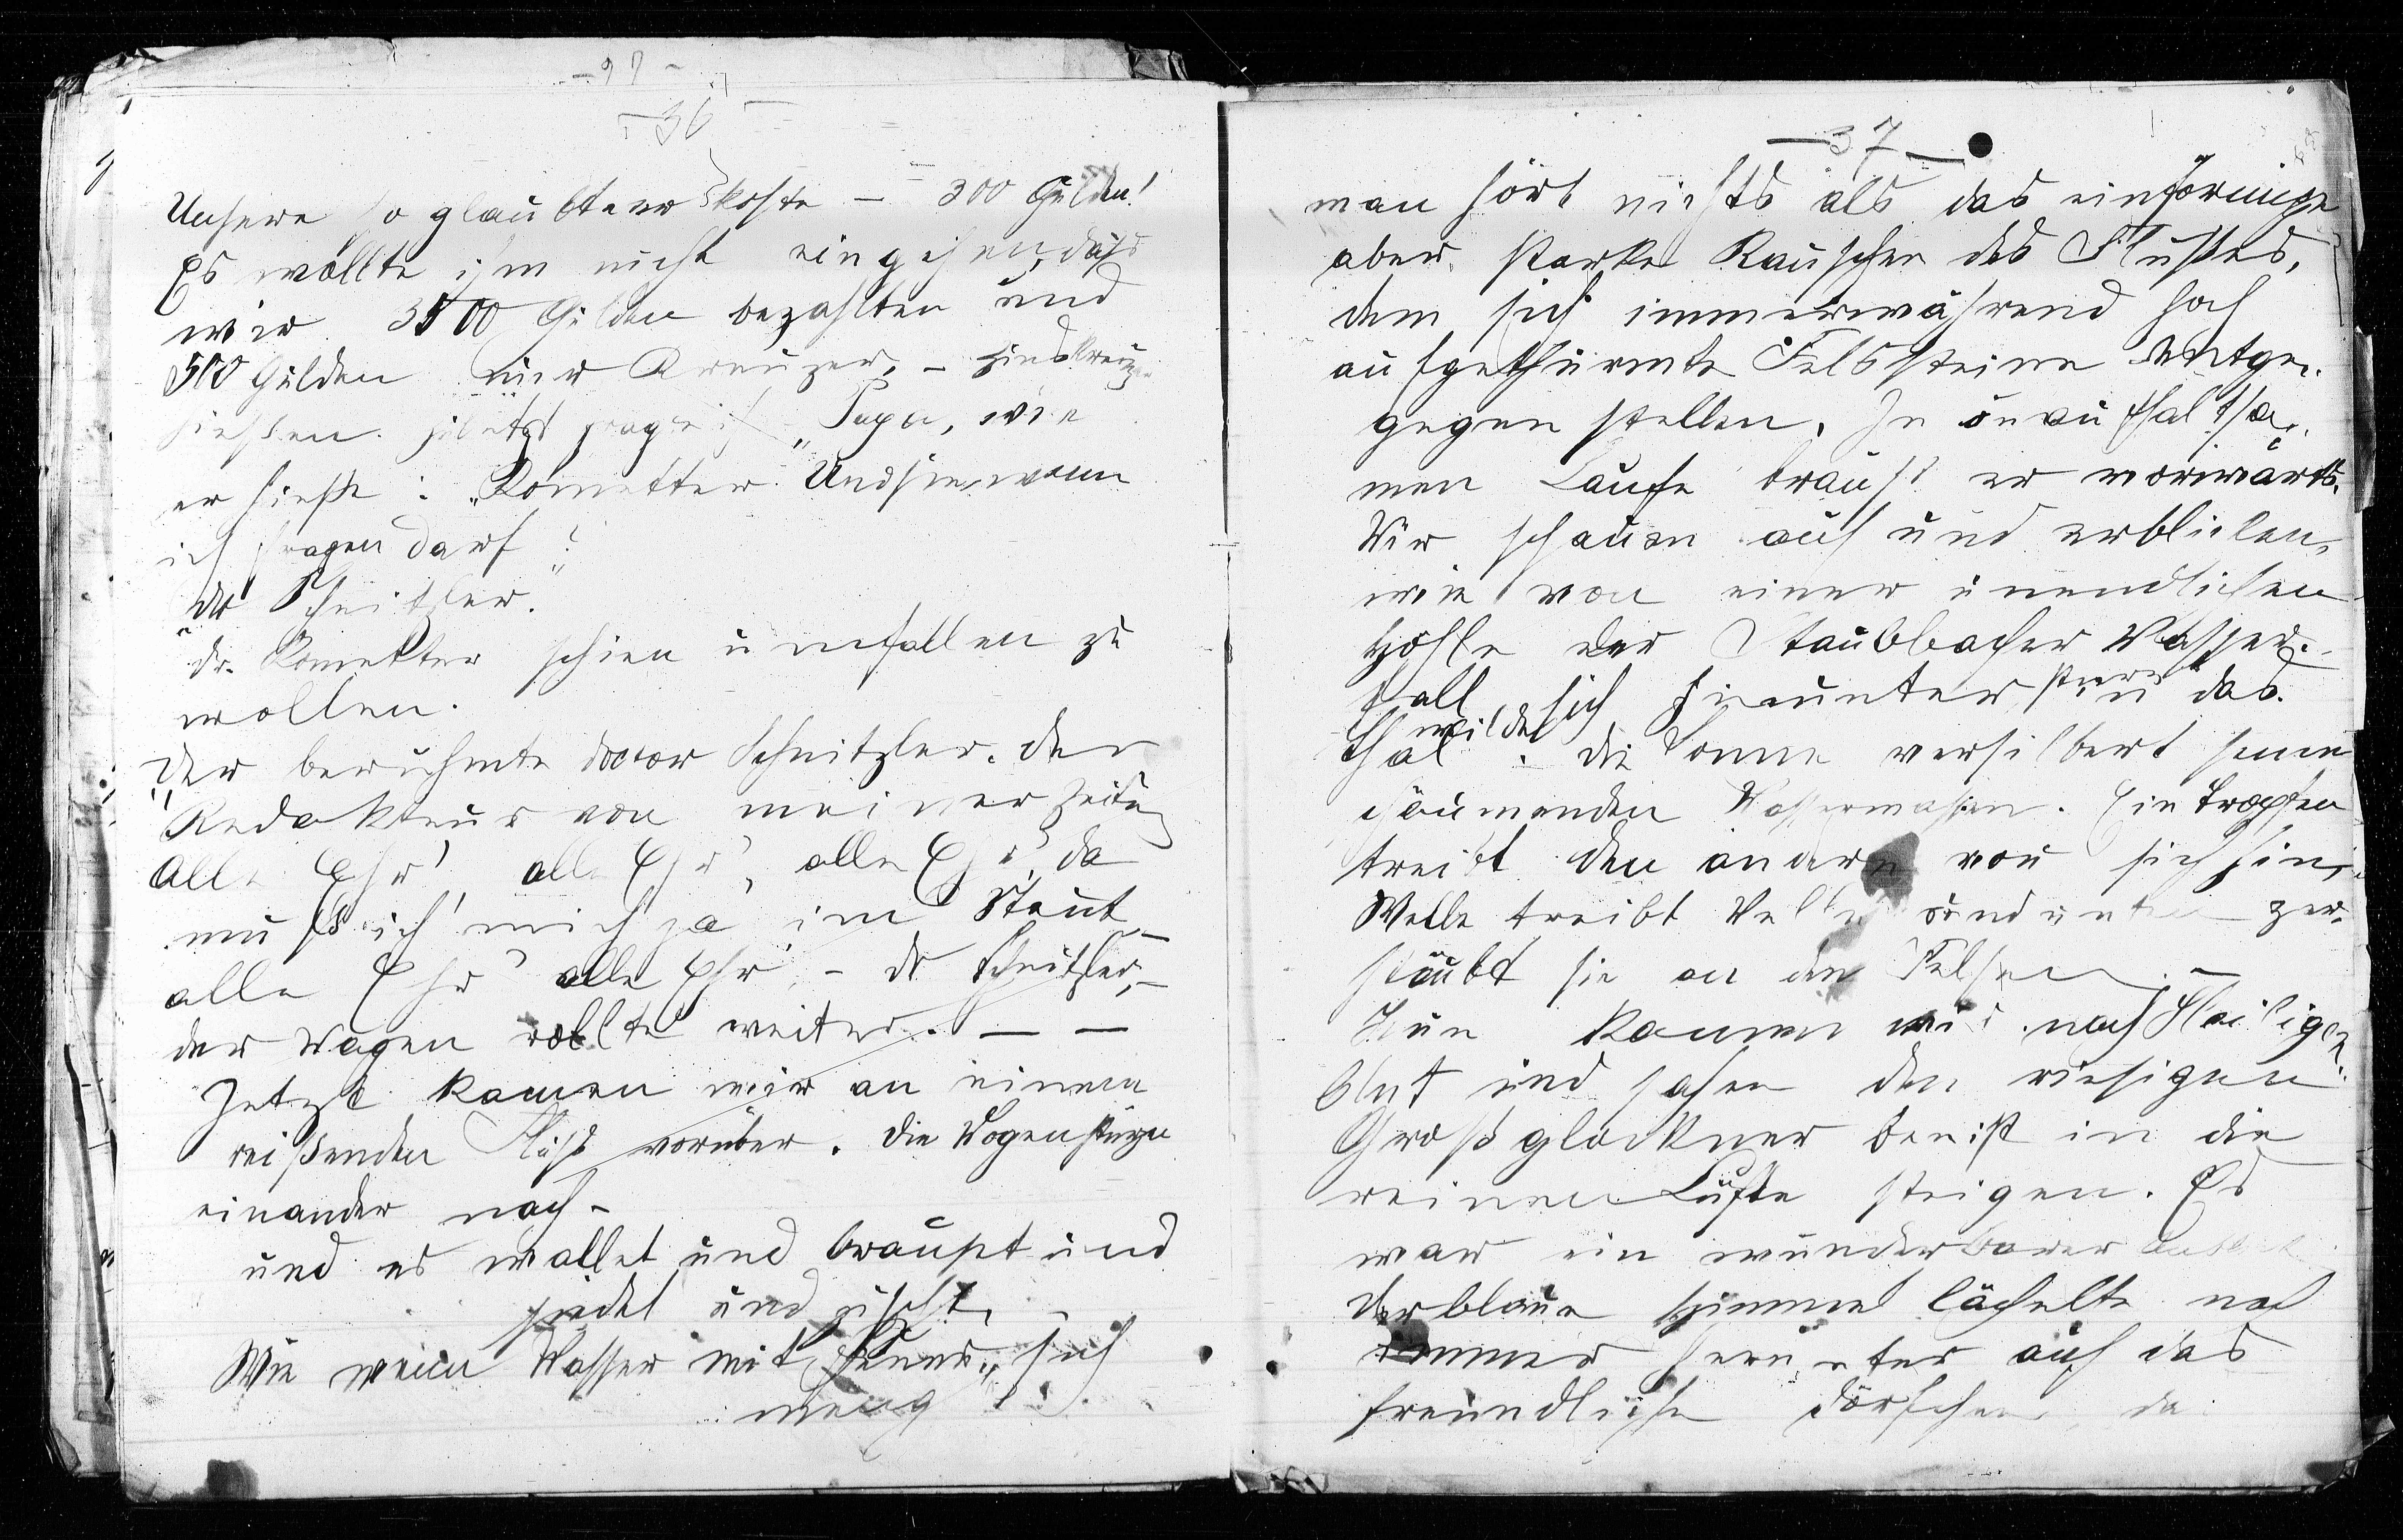 - 97 -
- 36 -
Unsere so glaubte er koste – 300 Gulden!
Es wollte ihm nicht eingehen, daß
wir 3500 Gulden bezahlten und
500 Gulden nur Kreuzer, –
hießen. fragte Papa, wie
er hieße: „Rometter. Und Sie, wenn
ich fragen darf?
„Dr Schnitzler.“
Dr. Rometter schien umfallen zu
wollen.
„Der berühmte Doctor Schnitzler. Der
Redakteur von meiner Zeitung
Alle Ehr', alle Ehr', alle Ehr', da
muß ich mich ja im Staub –
alle Ehr' alle Ehr', – Dr Schnitzler, –
der Wagen rollte weiter. – –
Jetzt kamen wir an einem
reißenden Fluß vorüber. Die Wogen stürzen
einander nach –
und es wallet und brauset und
siedet und zischt, –
Wie wenn Wasser mit Feuer sich
mengt
- 37 -
man hört nichts als das einförmige
aber starke Rauschen des Flußes,
dem sich immerwährend hoch
aufgethürmte Felssteine entge-
gegen stellen. In unaufhaltsa-
men Laufe braust er vorwärts.
Wir schauen auf und erblicken,
wie von einer unendlichen
Höhle der Staubbacher Wasser-
fall sich hinunter stürzt in das
wilde
Thal. Die Sonne versilbert seine
schäumenden Wassermassen. Ein Tropfen
treibt den andern vor sich hin,
Welle treibt Welle und unten zer-
stäubt sie an den Felsen. –
Nun kamen wir nach Heiligen-
blut und sahen den riesigen
Großglockner dreist in die
reinen Lüfte steigen. Es
war ein wunderbarer Anblick
Der blaue Himmel lächelte noch
immer herunter auf das
freundliche Dörfchen, da